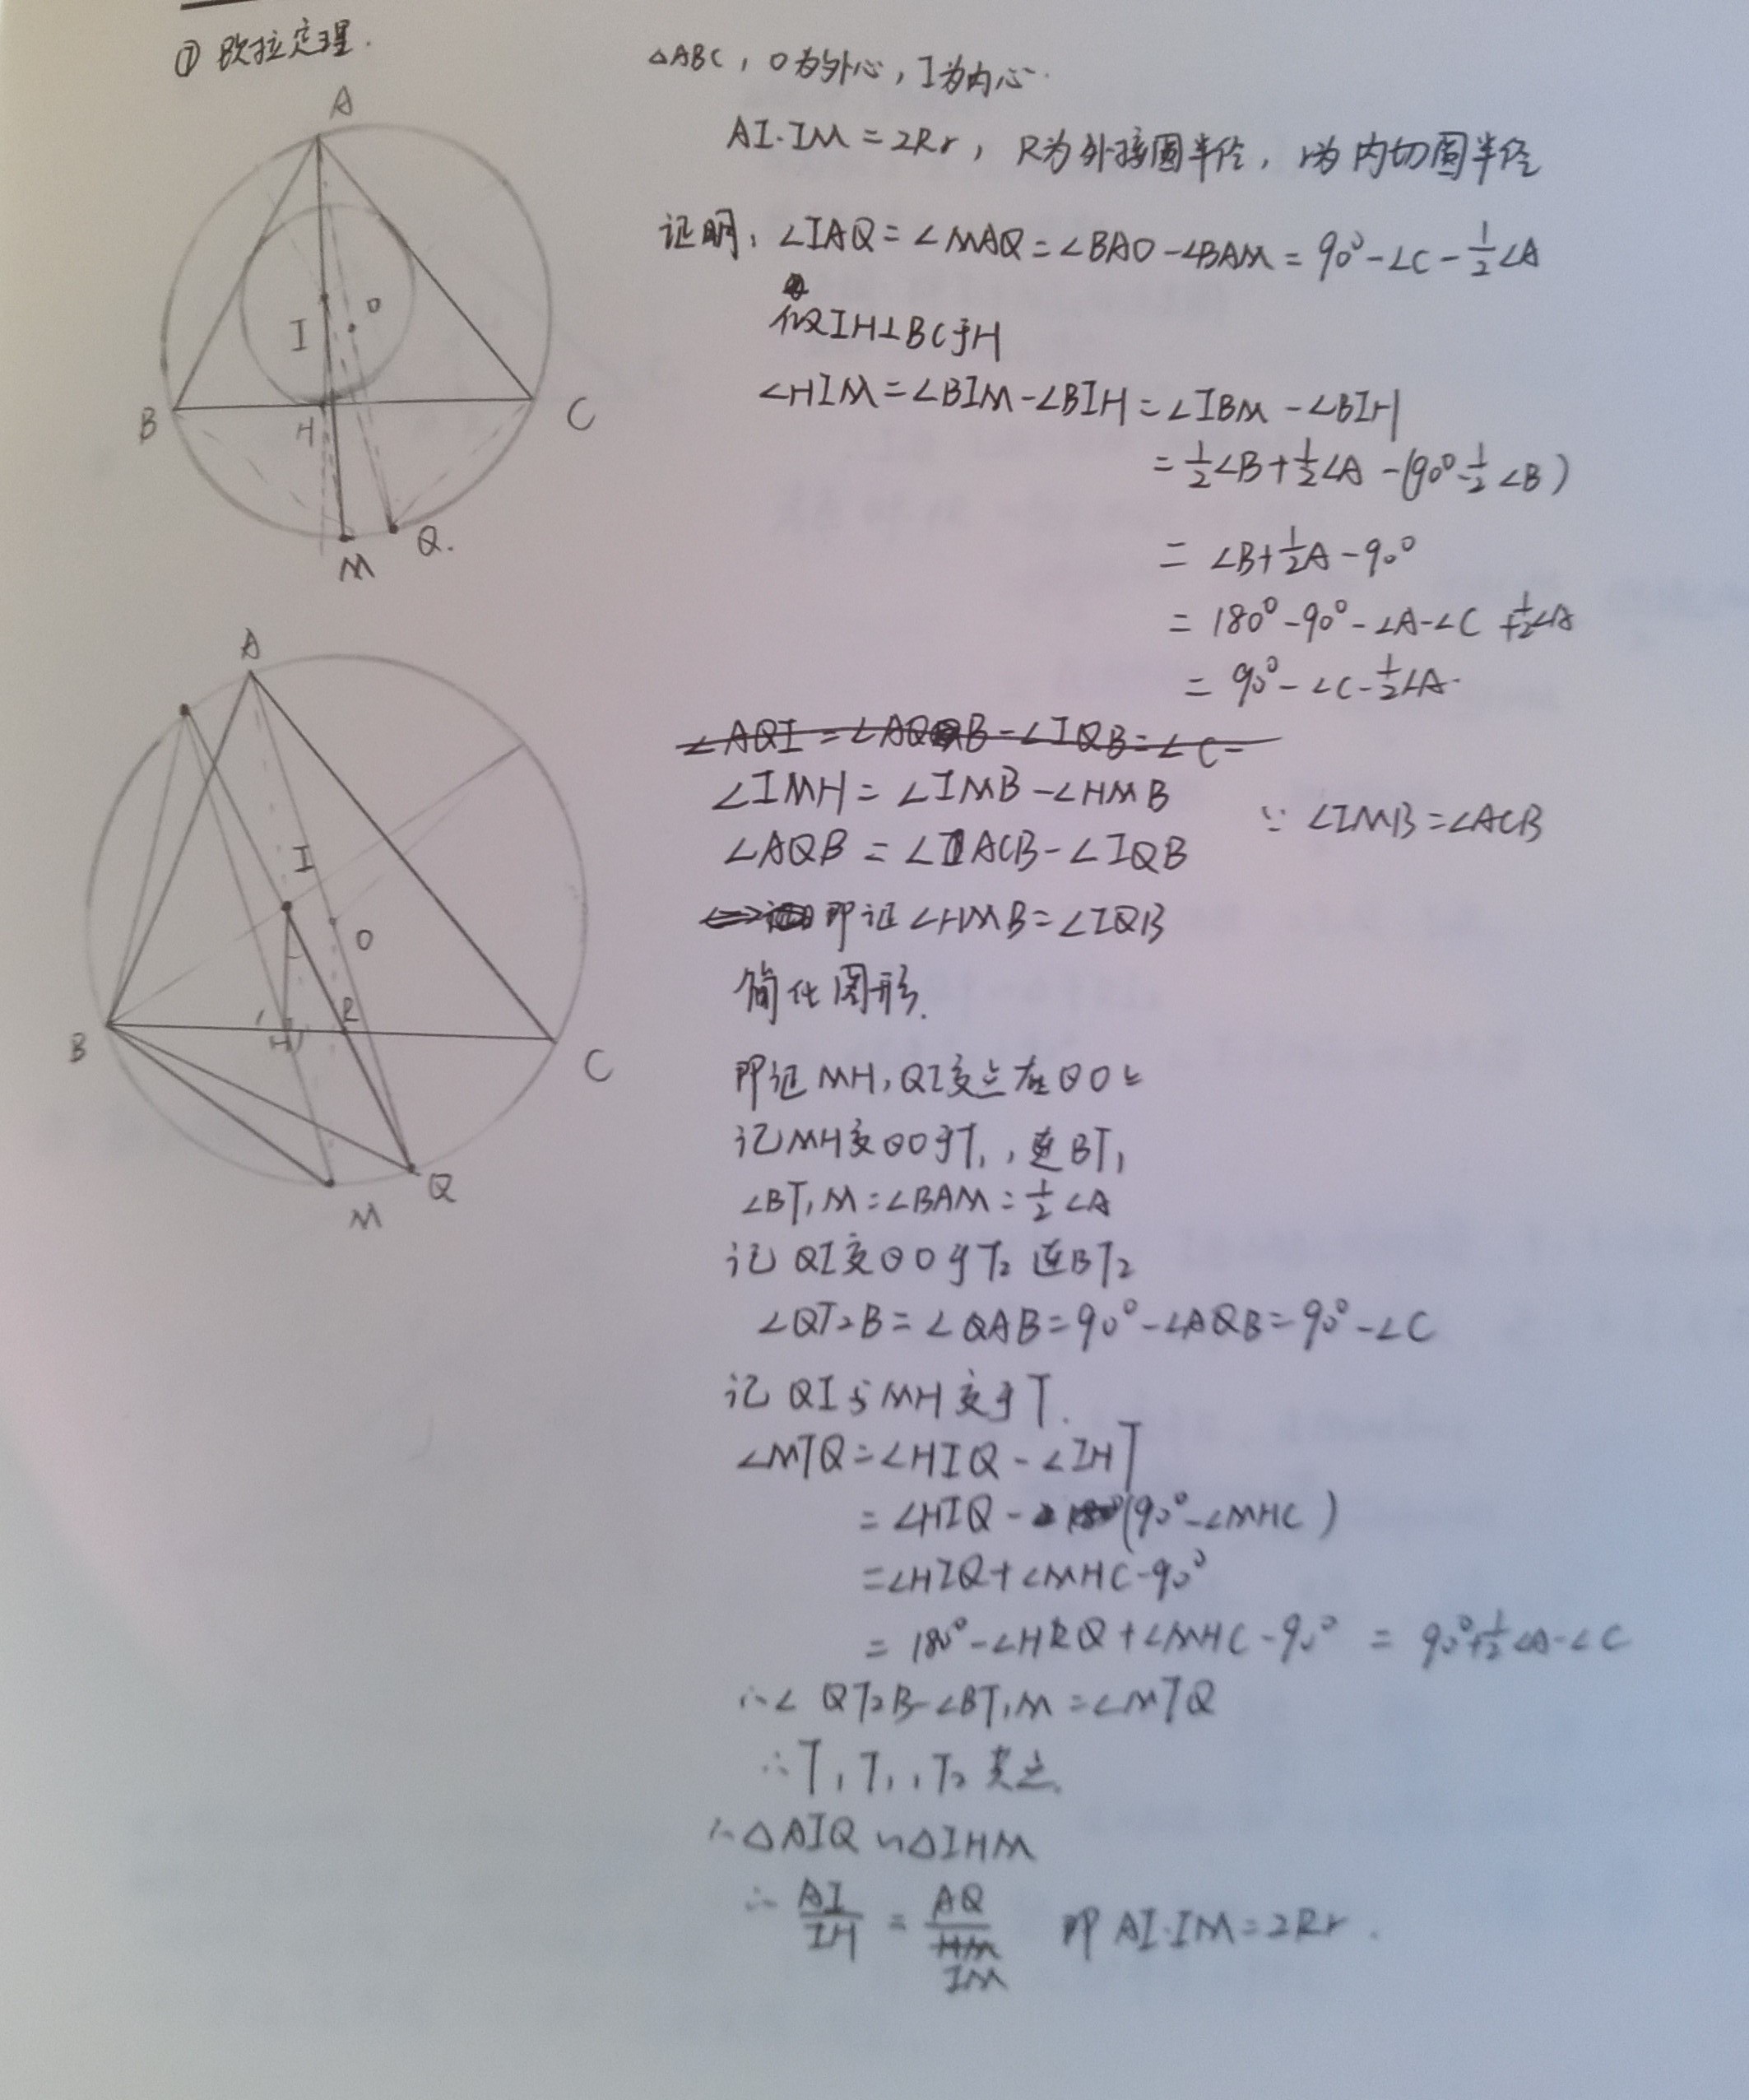 ① 欧拉定理.
△ABC, O为外心, I为内心.
AI·IM=2Rr, R为外接圆半径, r为内切圆半径
证明: ∠IAQ=∠MAQ=∠BAO-∠BAM=90°-∠C-½∠A
做IH⊥BC于H
∠HIM=∠BIM-∠BIH=∠IBM-∠BIH
=½∠B+½∠A-(90°-½∠B)
=∠B+½A-90°
=180°-90°-∠A-∠C+½∠A
=90°-∠C-½∠A.
∠IMH=∠IMB-∠HMB ∵∠IMB=∠ACB
∠AQB=∠ACB-∠IQB
即证∠HMB=∠IQB
简化图形.
即证MH,QI交点在⊙O上
记MH交⊙O于T₁,连BT₁
∠BT₁M=∠BAM=½∠A
记QI交⊙O于T₂ 连BT₂
∠QT₂B=∠QAB=90°-∠AQB=90°-∠C
记QI与MH交于T.
∠MTQ=∠HIQ-∠IHT
=∠HIQ-(90°-∠MHC)
=∠HIQ+∠MHC-90°
=180°-∠HRQ+∠MHC-90°=90°+½∠A-∠C
∴∠QT₂B-∠BT₁M=∠MTQ
∴T,T₁,T₂共点.
∴△AIQ∽△IHM
∴AI/IH=AQ/IM 即AI·IM=2Rr.
A
I
O
B
H
C
M
Q.
A
I
O
R
B
H
C
M
Q